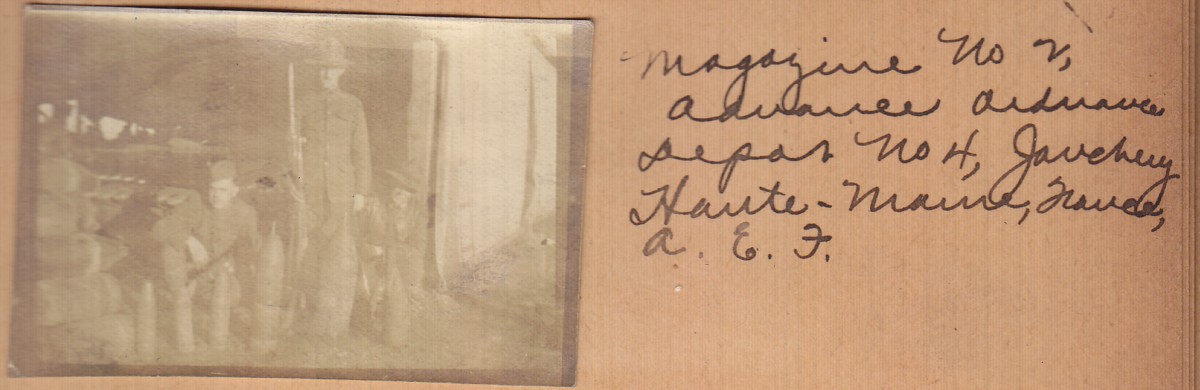 Magazine No 2,
Advance Ordnance
Depot No 4, Jonchery
Haute-Marne, France,
A. E. F.